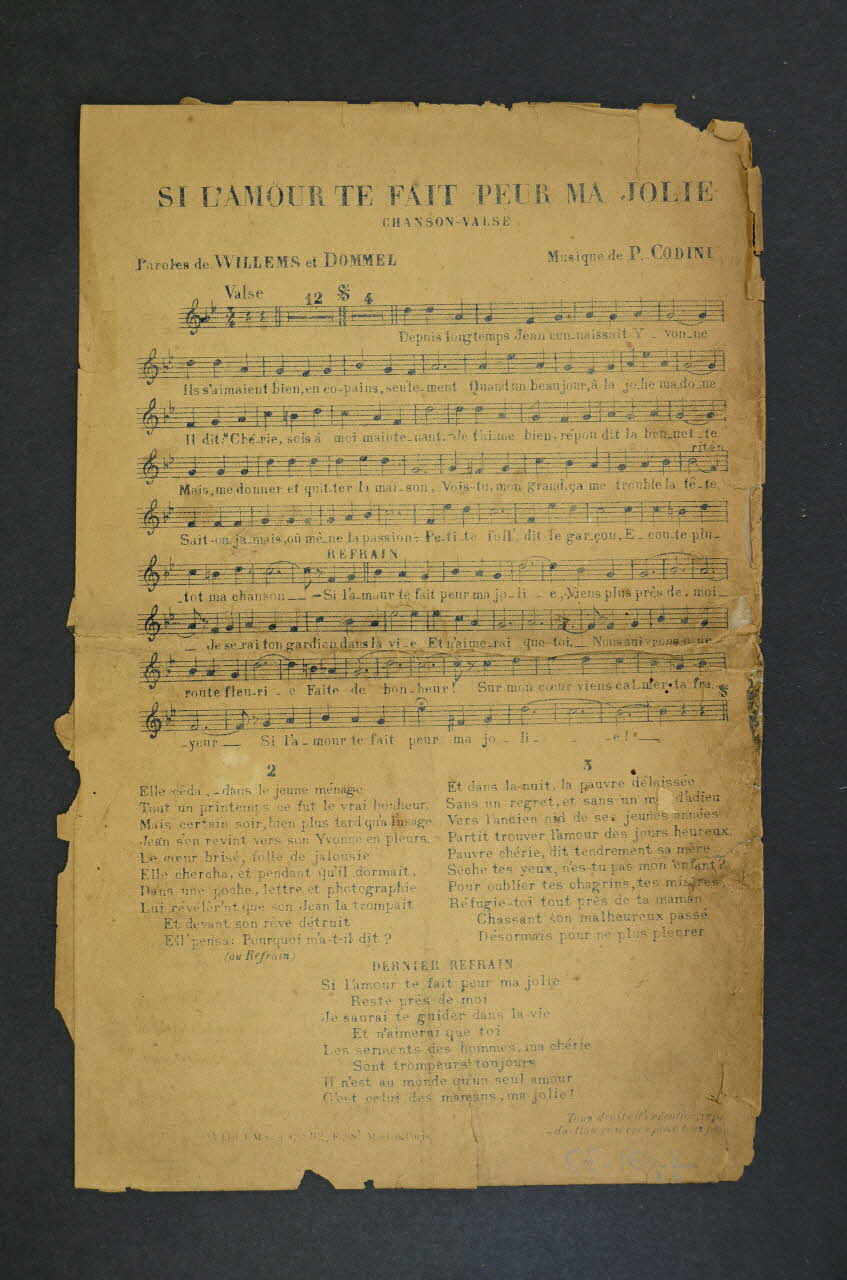 SI L'AMOUR TE FAIT PEUR MA JOLIE
CHANSON-VALSE
Paroles de WILLEMS et DOMMEL
Musique de P. CODINI
Valse
12 4
Depuis longtemps Jean con-naissait Y - von-ne
Ils s'aimaient bien, en co-pains, seu-le-ment Quand un beau jour, à la jo-lie ma-do-ne
Il dit: "Ché-rie, sois à moi mainte-nant. -Je t'ai-me bien, répon dit la bru-net-te
riten
Mais, me donner et quit-ter la mai-son, Vois-tu, mon grand, ça me trouble la tê-te
Sait-on ja-mais, où mè-ne la passion- Pe-ti-te foll', dit le gar-çon, E-cou-te plu-
REFRAIN
-tot ma chanson - Si l'a-mour te fait peur ma jo-li-e, Viens plus près de moi
- Je se-rai ton gardien dans la vi-e Et n'aime-rai que toi. - Nous suivrons u-ne
route fleu-ri-e Faite de bon-heur! Sur mon cœur viens cal-mer ta fra-
-yeur - Si l'a-mour te fait peur ma jo-li-e!
2
Elle céda, - dans le jeune ménage
Tout un printemps ce fut le vrai bonheur.
Mais certain soir, bien plus tard qu'à l'usage
Jean s'en revint vers son Yvonne en pleurs.
Le cœur brisé, folle de jalousie
Elle chercha, et pendant qu'il dormait,
Dans une poche, lettre et photographie
Lui révélèr'nt que son Jean la trompait
Et devant son rêve détruit
Ell' pensa: Pourquoi m'a-t-il dit ?
(au Refrain)
3
Et dans la nuit, la pauvre délaissée
Sans un regret, et sans un d'adieu
Vers l'ancien nid de ses jeunes années
Partit trouver l'amour des jours heureux.
Pauvre chérie, dit tendrement sa mère
Sèche tes yeux, n'es-tu pas mon enfant?
Pour oublier tes chagrins, tes misères,
Réfugie-toi tout près de ta maman
Chassant son malheureux passé
Désormais pour ne plus pleurer
DERNIER REFRAIN
Si l'amour te fait peur ma jolie
Reste près de moi
Je saurai te guider dans la vie
Et n'aimerai que toi
Les serments des hommes, ma chérie
Sont trompeurs toujours
Il n'est au monde qu'un seul amour
C'est celui des mamans, ma jolie!
Tous droits d'exécution,